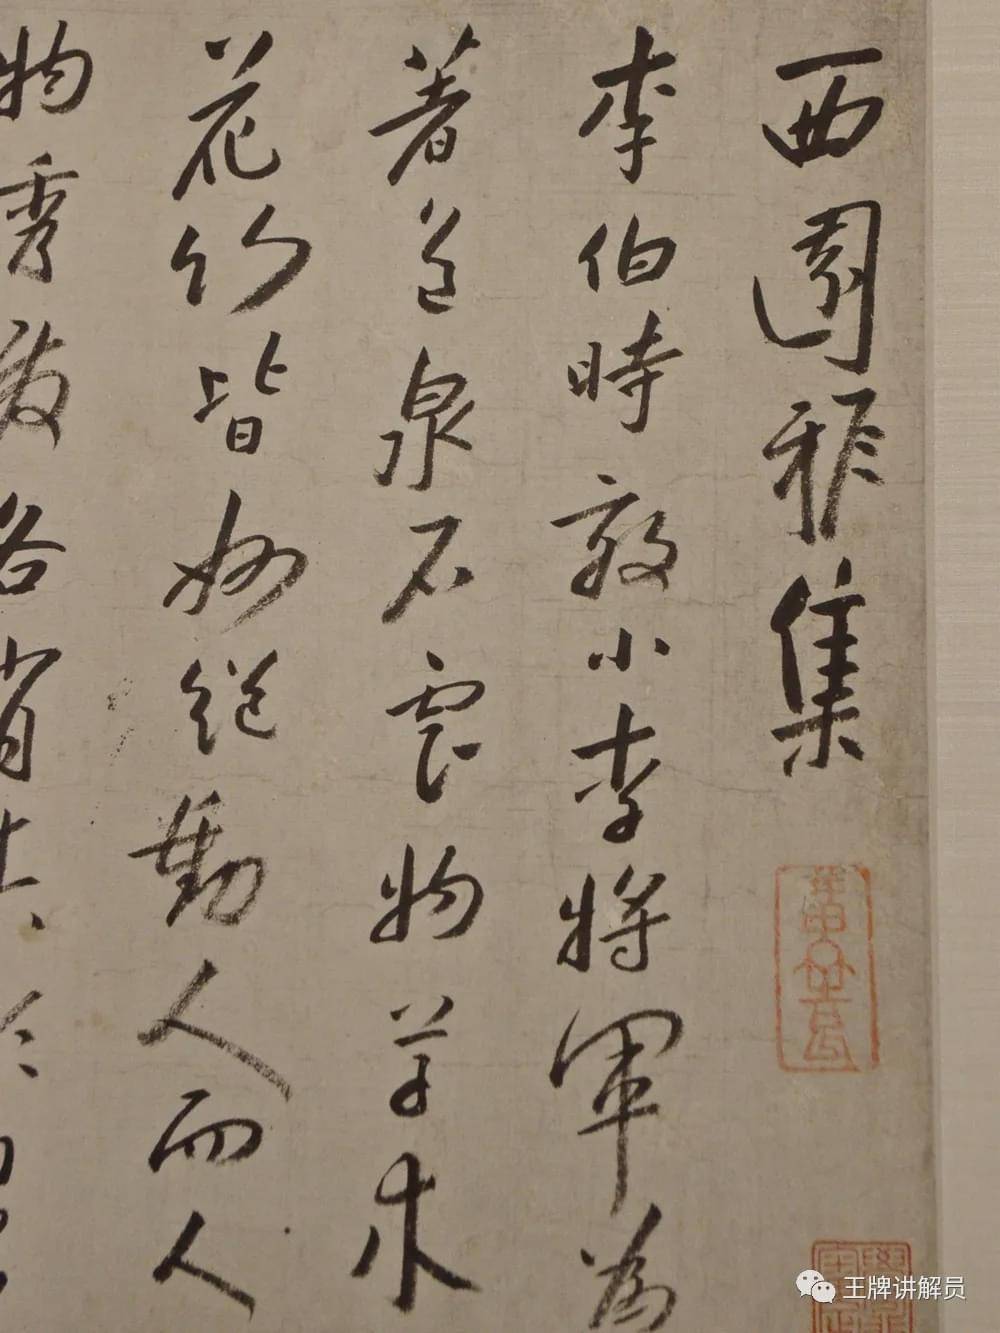 西園雅集
李伯時效小李將軍為
著色泉石雲物草木
花竹皆妙絕動人而人
物秀發各肖其
王牌讲解员